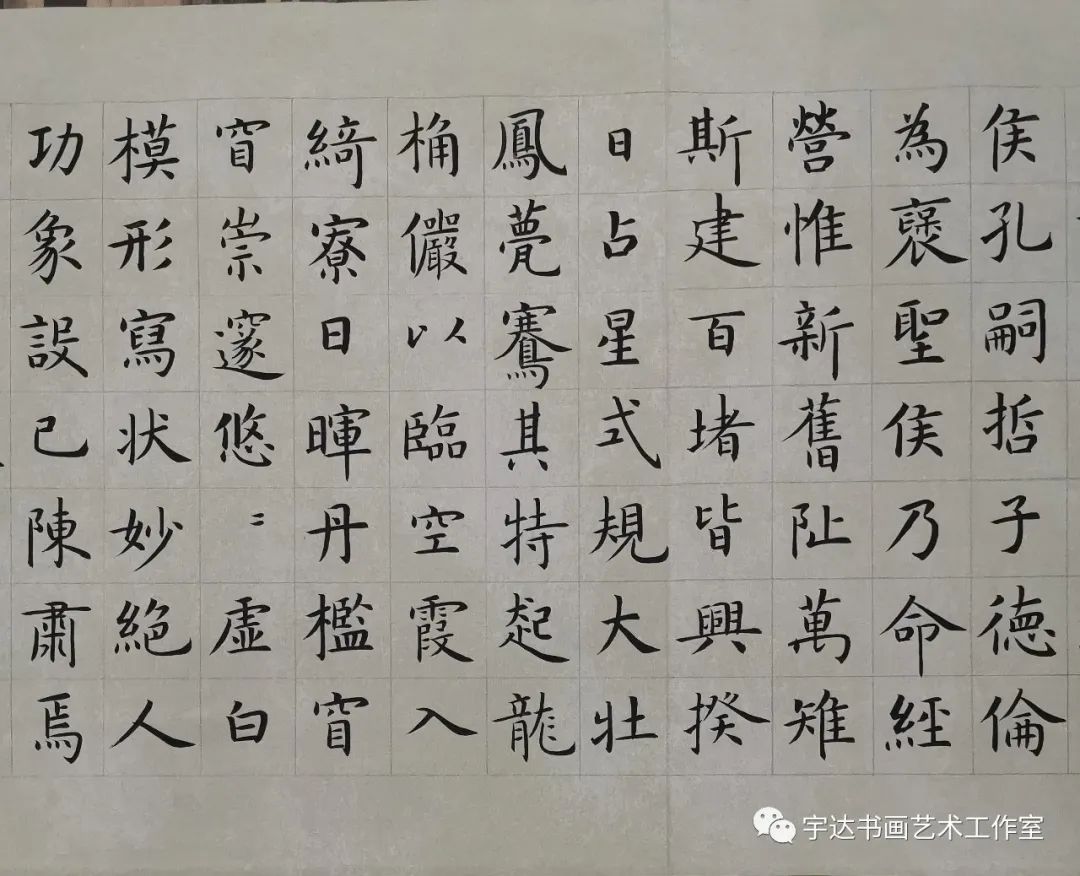 侯孔嗣哲子德倫
為褒聖侯乃命經
營惟新舊阯萬雉
斯建百堵皆興揆
日占星式規大壯
鳳甍鶱其特起龍
桷儼以臨空霞入
綺寮日暉丹檻窅
窅崇邃悠〻虛白
模形寫狀妙絕人
功象設已陳肅焉
宇达书画艺术工作室